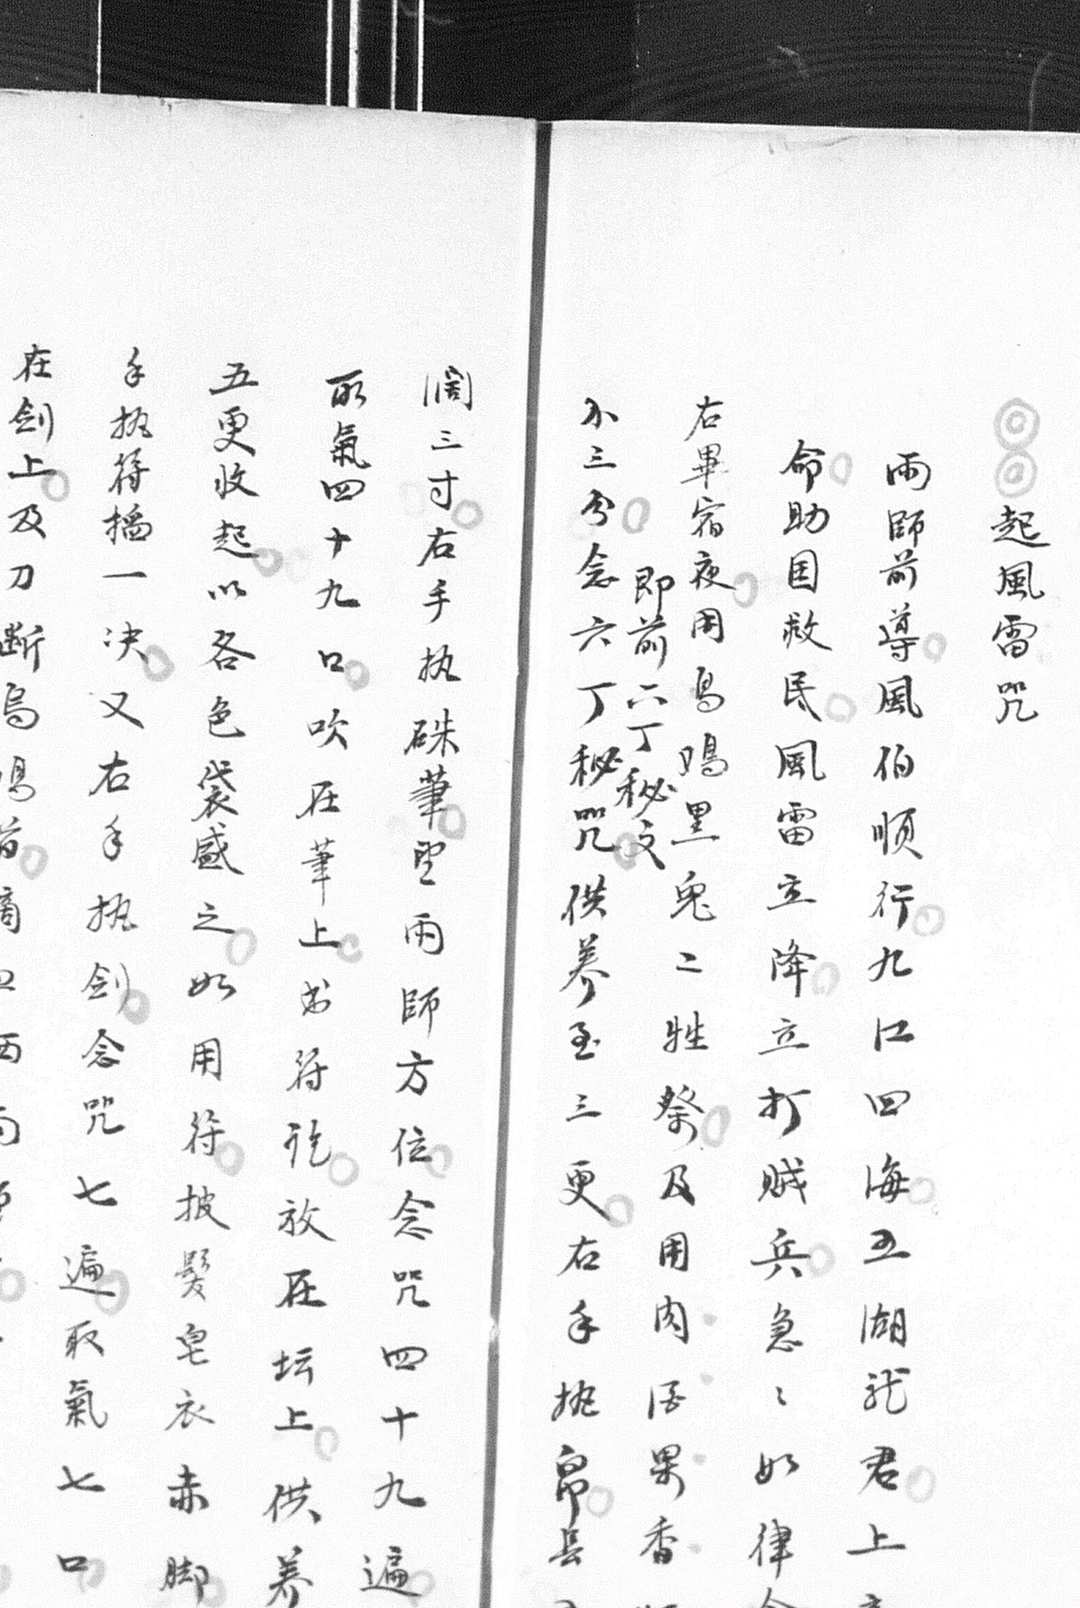 起風雷咒
雨師前導風伯順行九江四海五湖龍君上
命助国救民風雷立降立打賊兵急〻如律令
右畢宿夜用烏鳴黑鬼二牲祭及用肉酒果香
即前六丁秘文
小三分念六丁秘咒供养至三更右手执帛長
濶三寸右手执硃筆望雨師方位念咒四十九遍
取氣四十九口吹在筆上书符訖放在坛上供养
五更收起以各色袋盛之如用符披髮皂衣赤脚
手执符搯一决又右手执劍念咒七遍取氣七口
在劍上及刀断烏鳴首滴血